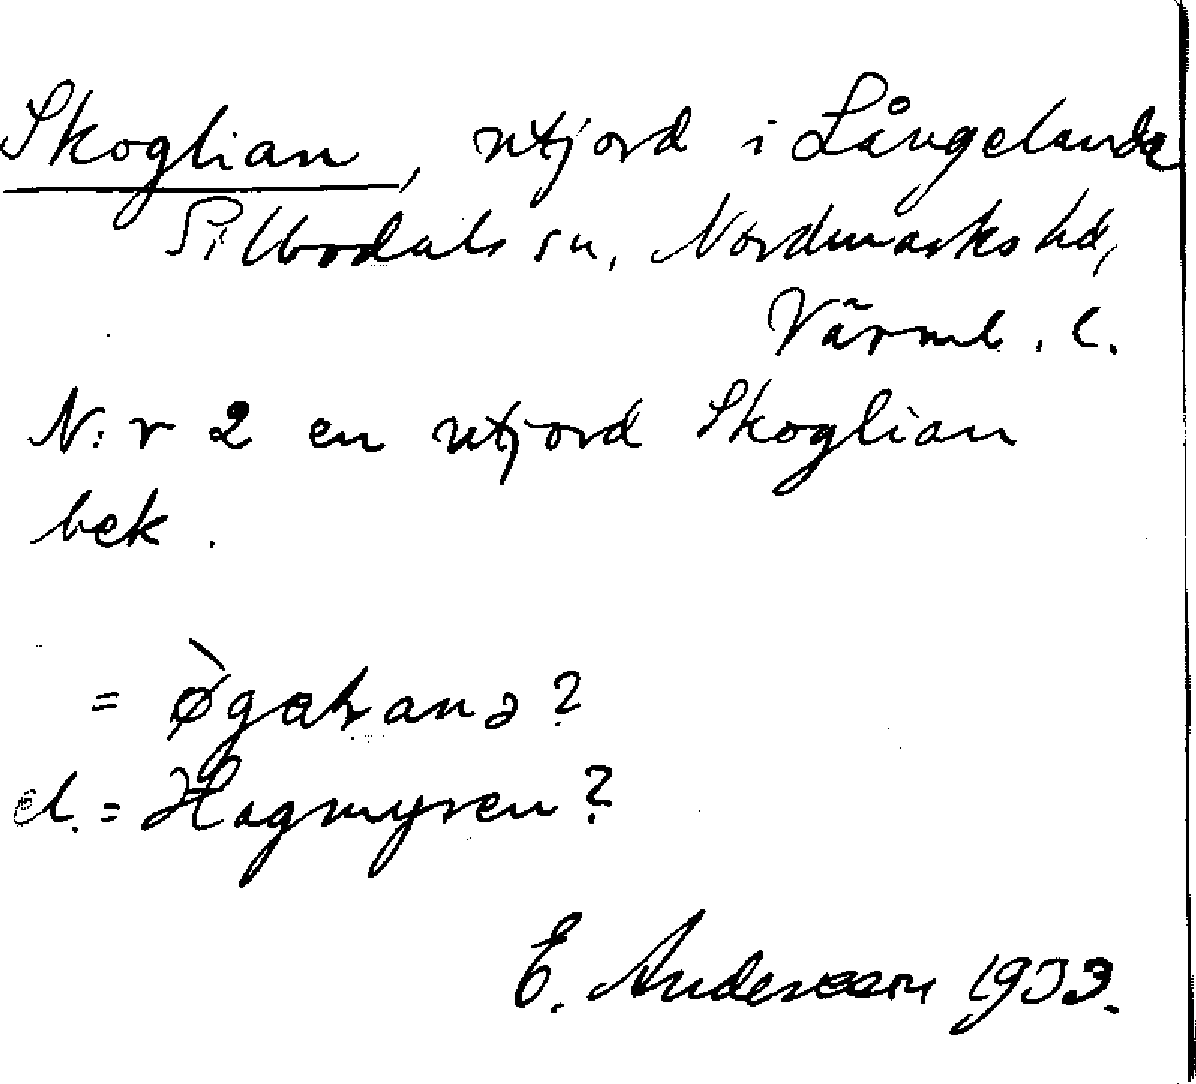 Skoglian, utjord i Långelanda
Silbodals sn, Nordmarks hd,
Värml. l.
N:r 2 en utjord Skoglian
bek.
=
el. = Hagmyren?
E. Andersson 1933.